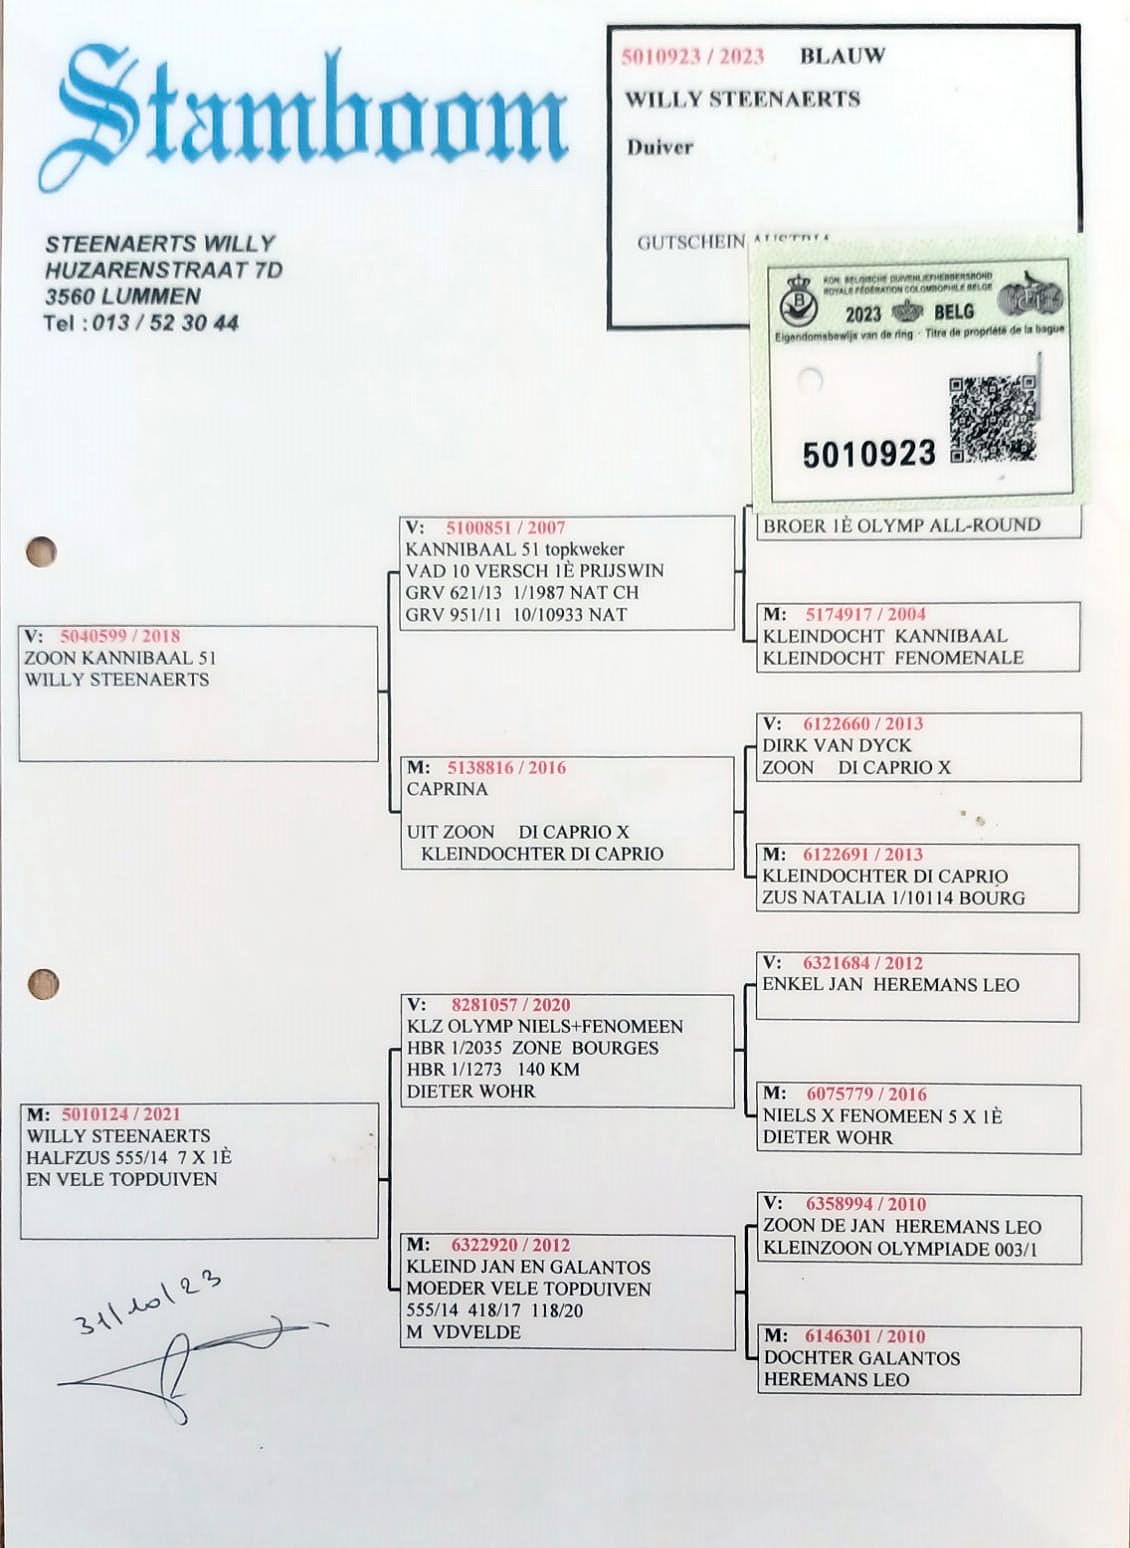 Stamboom
5010923 / 2023 BLAUW
WILLY STEENAERTS
Duiver
GUTSCHEIN AUSTRIA
STEENAERTS WILLY
HUZARENSTRAAT 7D
3560 LUMMEN
Tel : 013 / 52 30 44
KON. BELGISCHE DUIVENLIEFHEBBERSBOND
ROYALE FÉDÉRATION COLOMBOPHILE BELGE
2023 BELG
Eigendomsbewijs van de ring - Titre de propriété de la bague
5010923
V: 5040599 / 2018
ZOON KANNIBAAL 51
WILLY STEENAERTS
V: 5100851 / 2007
KANNIBAAL 51 topkweker
VAD 10 VERSCH 1È PRIJSWIN
GRV 621/13 1/1987 NAT CH
GRV 951/11 10/10933 NAT
BROER 1È OLYMP ALL-ROUND
M: 5174917 / 2004
KLEINDOCHT KANNIBAAL
KLEINDOCHT FENOMENALE
M: 5138816 / 2016
CAPRINA
UIT ZOON DI CAPRIO X
KLEINDOCHTER DI CAPRIO
V: 6122660 / 2013
DIRK VAN DYCK
ZOON DI CAPRIO X
M: 6122691 / 2013
KLEINDOCHTER DI CAPRIO
ZUS NATALIA 1/10114 BOURG
M: 5010124 / 2021
WILLY STEENAERTS
HALFZUS 555/14 7 X 1È
EN VELE TOPDUIVEN
V: 8281057 / 2020
KLZ OLYMP NIELS+FENOMEEN
HBR 1/2035 ZONE BOURGES
HBR 1/1273 140 KM
DIETER WOHR
V: 6321684 / 2012
ENKEL JAN HEREMANS LEO
M: 6075779 / 2016
NIELS X FENOMEEN 5 X 1È
DIETER WOHR
M: 6322920 / 2012
KLEIND JAN EN GALANTOS
MOEDER VELE TOPDUIVEN
555/14 418/17 118/20
M VDVELDE
V: 6358994 / 2010
ZOON DE JAN HEREMANS LEO
KLEINZOON OLYMPIADE 003/1
M: 6146301 / 2010
DOCHTER GALANTOS
HEREMANS LEO
31/10/23